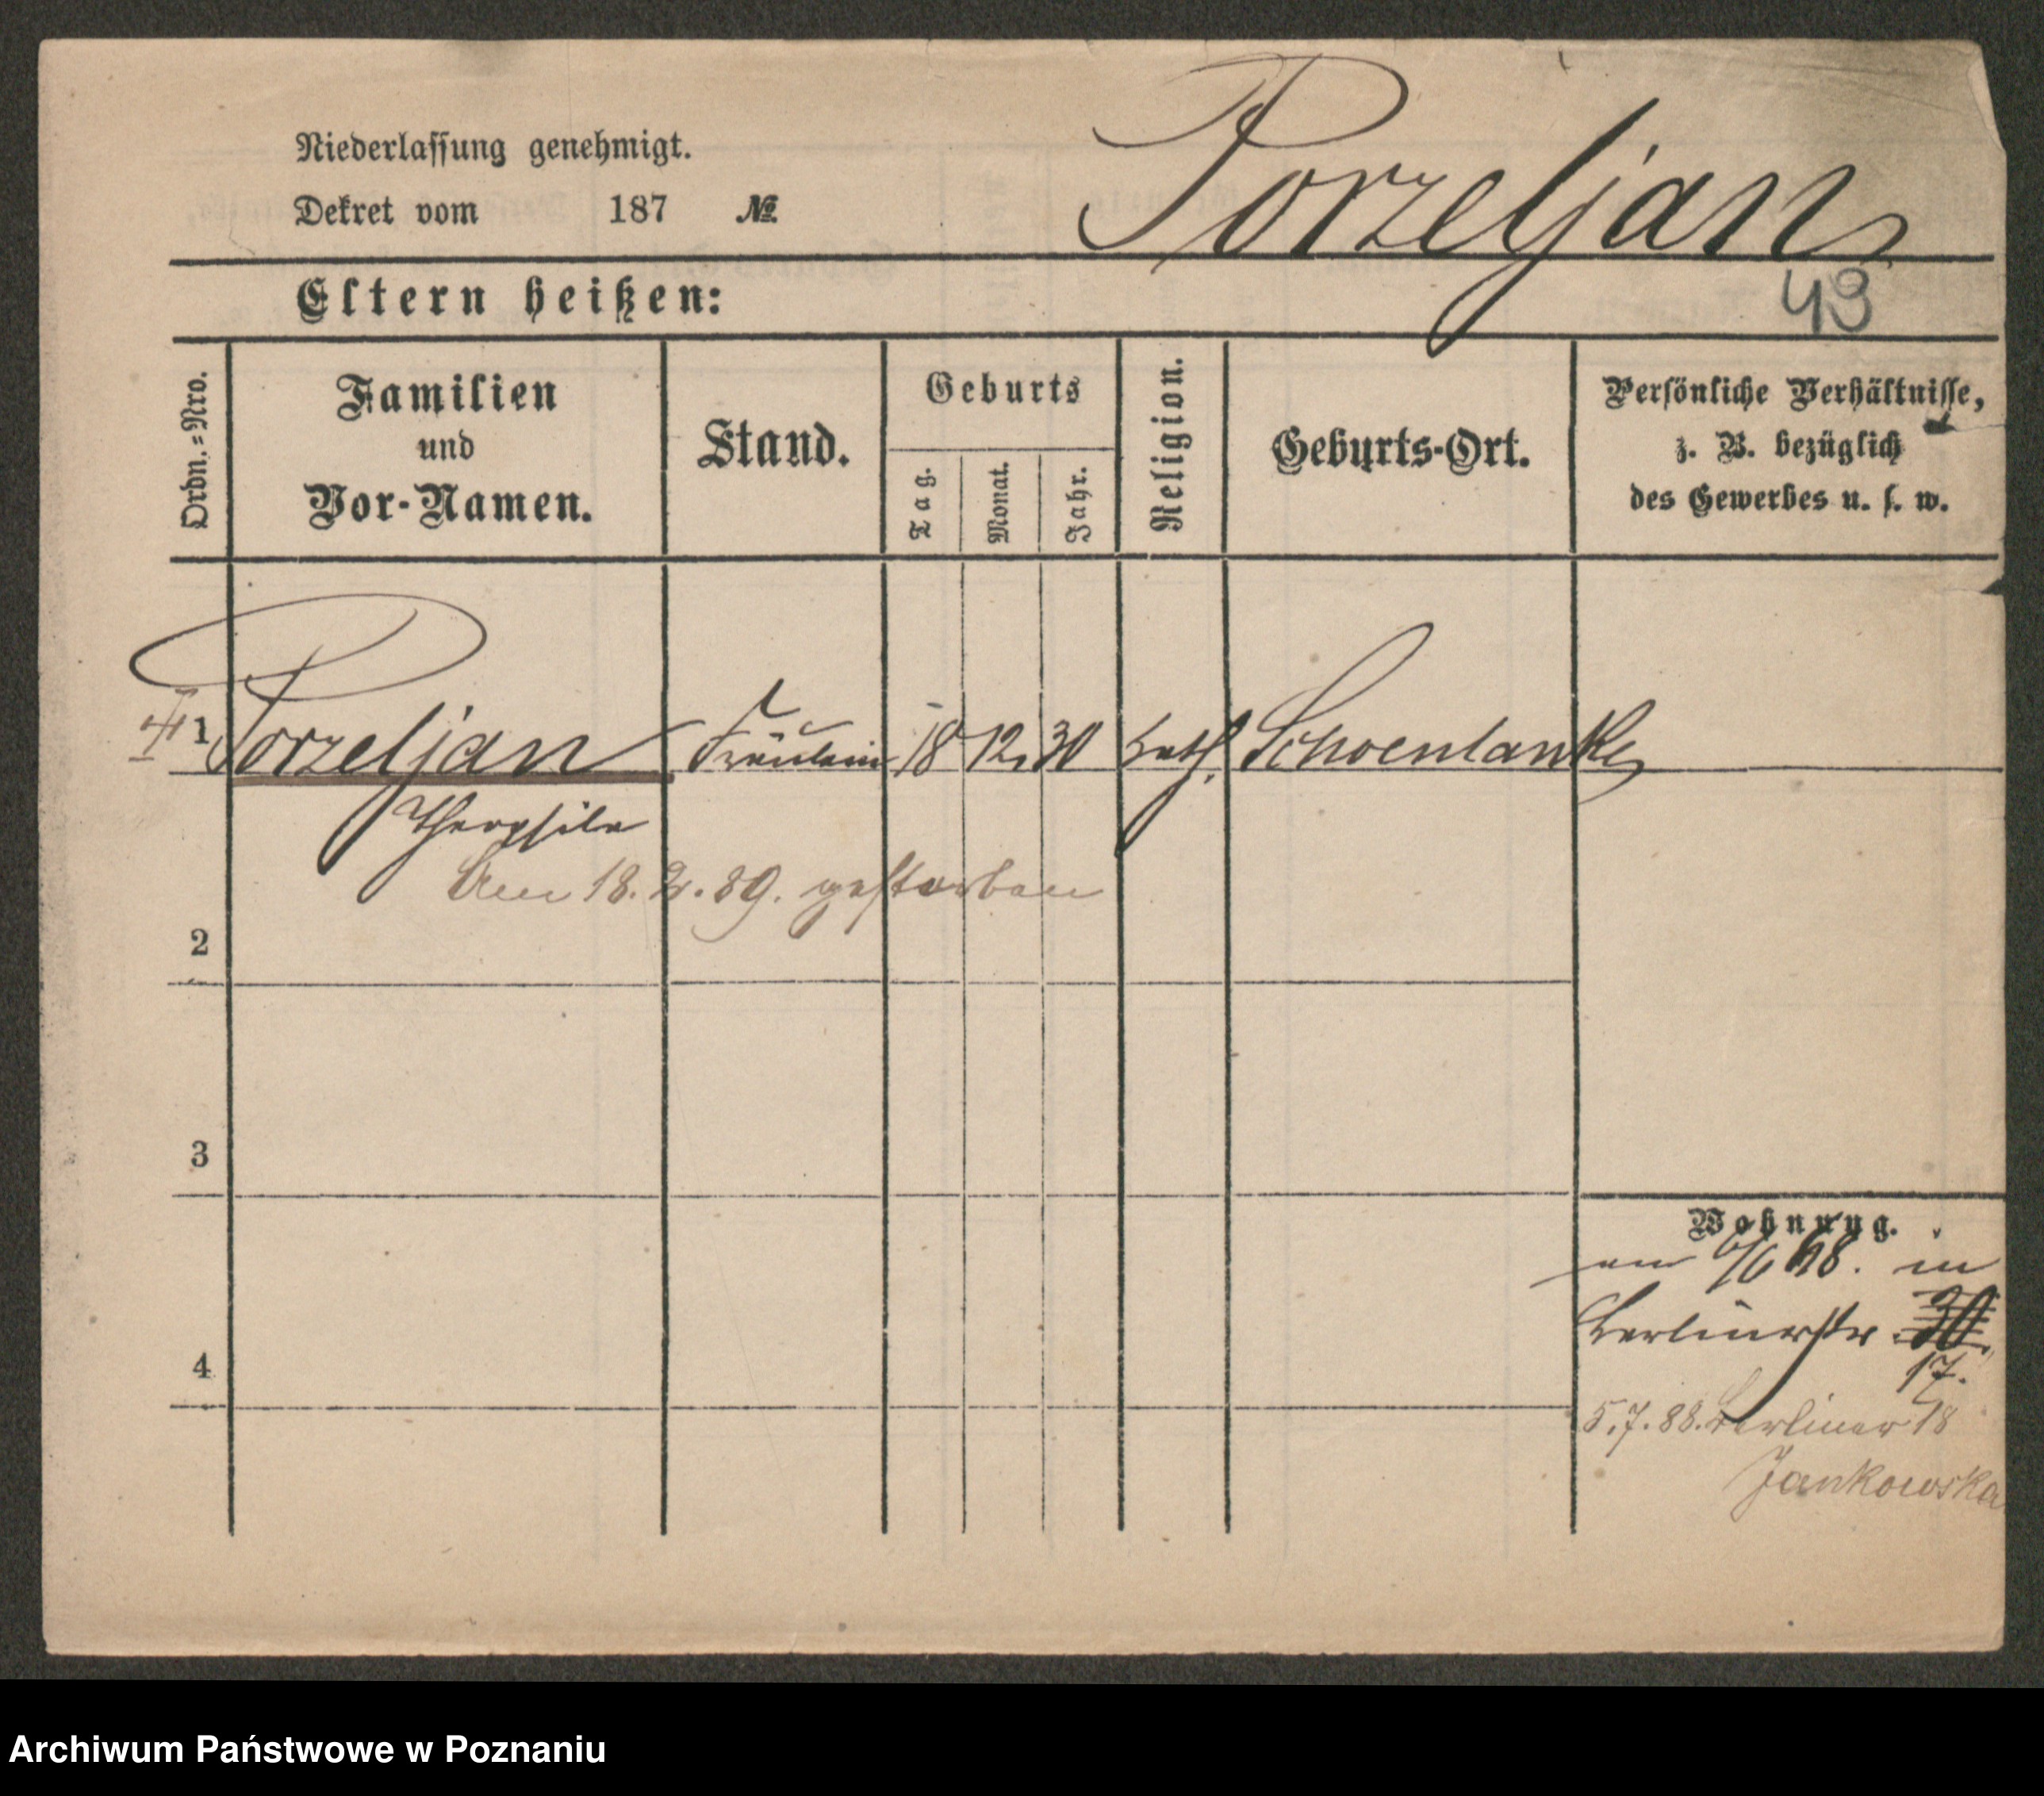 Niederlassung genehmigt.
Dekret vom 187 №
Porzeljan
Eltern heißen:
43
Ordn.=Nro.
Familien
und
Vor-Namen.
Stand.
Geburts
Tag.
Monat.
Jahr.
Religion.
Geburts-Ort.
Persönliche Verhältnisse,
z. B. bezüglich
des Gewerbes u. s. w.
1 Porzeljan Fräulein 18 12. 30 kath. Schoenlanke
Theophila
Am 18. 2. 89. gestorben
2
3
Wohnung.
in
Berlinerstr. 30.
17.
4
5.7.88. Berliner 18
Jankowska
Archiwum Państwowe w Poznaniu